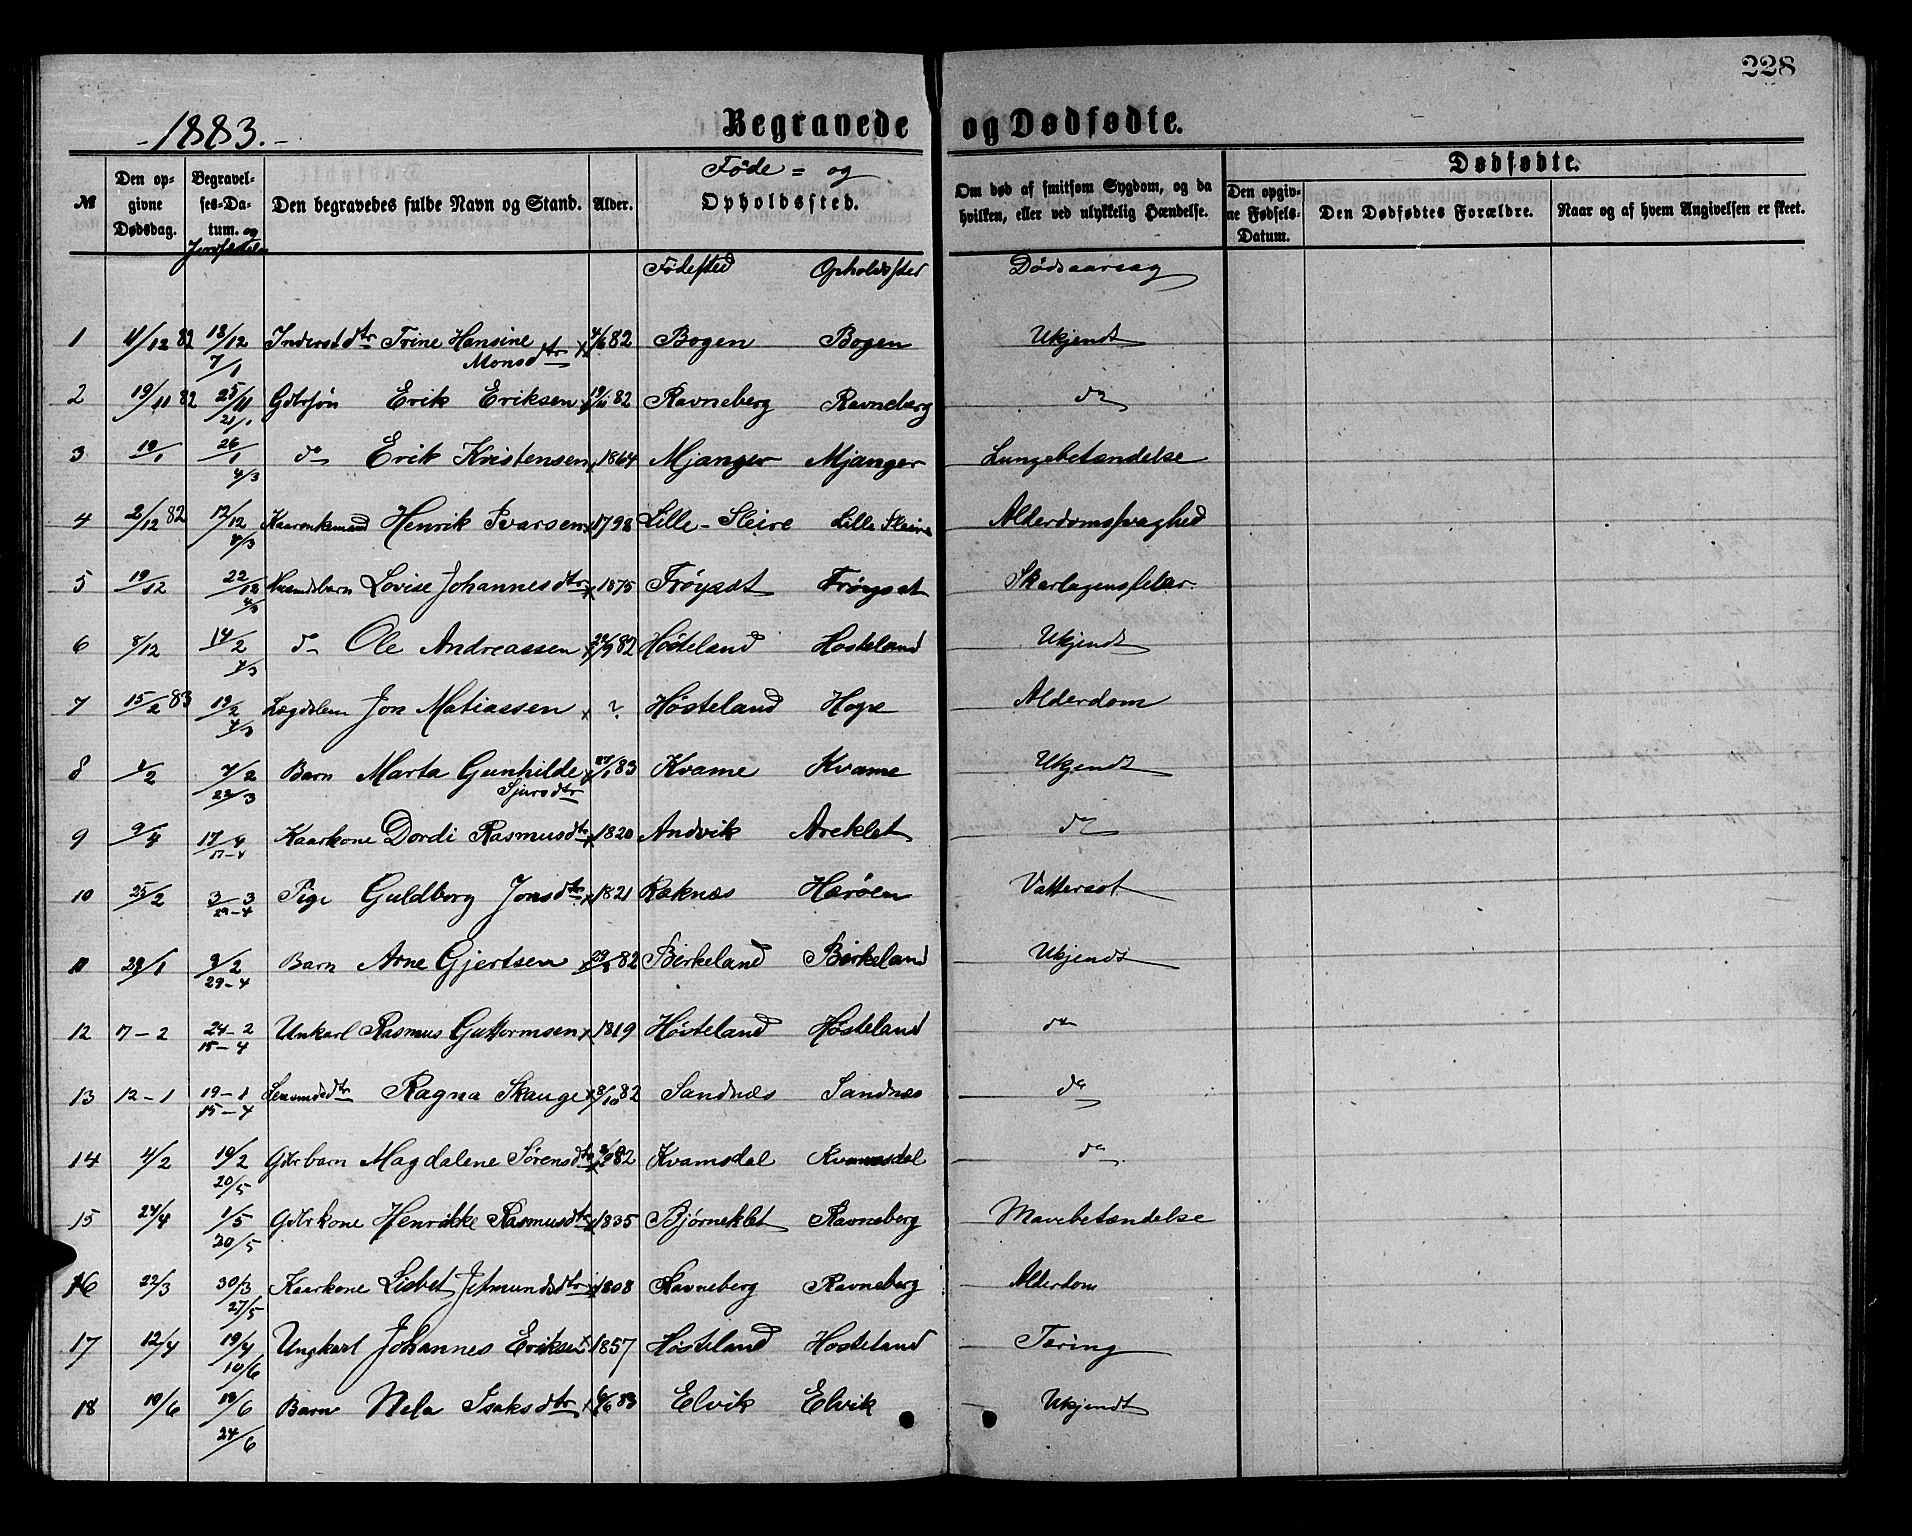 228
- 1883. -
Begravede og Dødfødte.
№ Den opgivne Dødsdag. Begravelses-Datum. og Den begravedes fulde Navn og Stand. Alder. Føde = og Opholdssted. Om død af smitsom Sygdom, og da hvilken, eller ved ulykkelig Hændelse.
Dødfødte.
Den opgivne Fødsels-Datum. Den Dødfødtes Forældre. Naar og af hvem Angivelsen er skeet.
Fødested Opholdssted Dødsaarsag
1 11/12 82 18/12 Inderstdtr Trine Hansine x 4/6 82 Bogen Bogen Ukjendt
7/1 Monsdtr
2 19/11 82 25/11 Gdbrsøn Erik Eriksen x 19/11 82 Ravneberg Ravneberg do
21/1
3 19/1 26/1 do Erik Kristensen x 1864 Mjanger Mjanger Lungebetændelse
4/3
4 2/12 82 12/12 Henrik Ivarsen x 1798 Lille-Sleire Lille Sleire Alderdomssvaghed
4/3
5 19/12 22/12 Husmdsbarn Lovise Johannesdtr x 1875 Frøysæt Frøysæt Skarlagensfeber
4/3
6 8/12 14/2 do Ole Andreassen x 82 Høsteland Høsteland Ukjendt
4/3
7 15/2 83 19/2 Lægdslem Jon Matiassen x ? Høsteland Hope Alderdom
4/3
8 1/2 7/2 Barn Marta Gunhilde x 27/1 83 Kvame Kvame Ukjendt
22/3 Sjursdtr
9 9/4 17/4 Kaarkone Dordi Rasmusdtr x 1820 Andvik Areklet do
17-4
10 25/2 3-3 Pige Guldborg Jonsdtr x 1821 Ræknæs Hærøen Vattersot
29-4
11 29/1 9/2 Barn Arne Gjertsen x 82 Birkeland Birkeland Ukjendt
29-4
12 17-2 24-2 Unkarl Rasmus Guttormsen x 1819 Høsteland Høsteland do
15-4
13 12-1 19-1 Ragna Skauge x 8/10 82 Sandnæs Sandnæs do
15-4
14 4/2 19/2 Gdbrbarn Magdalene Sørensdtr x 82 Kvamsdal Kvamsdal do
20/5
15 24/4 1/5 Gdbrkone Henrikke Rasmusdtr x 1835 Bjørneklet Ravneberg Mavebetændelse
20/5
16 22/3 30/3 Kaarkone Lisbet Jetmundsdtr x 1808 Ravneberg Ravneberg Alderdom
27/5
17 12/4 19/4 Ungkarl Johannes Eriksen x 1857 Høsteland Høsteland Tæring
10/6
18 10/6 18/6 Barn Nela Isaksdtr x 6/6 83 Elvik Elvik Ukjendt
24/6